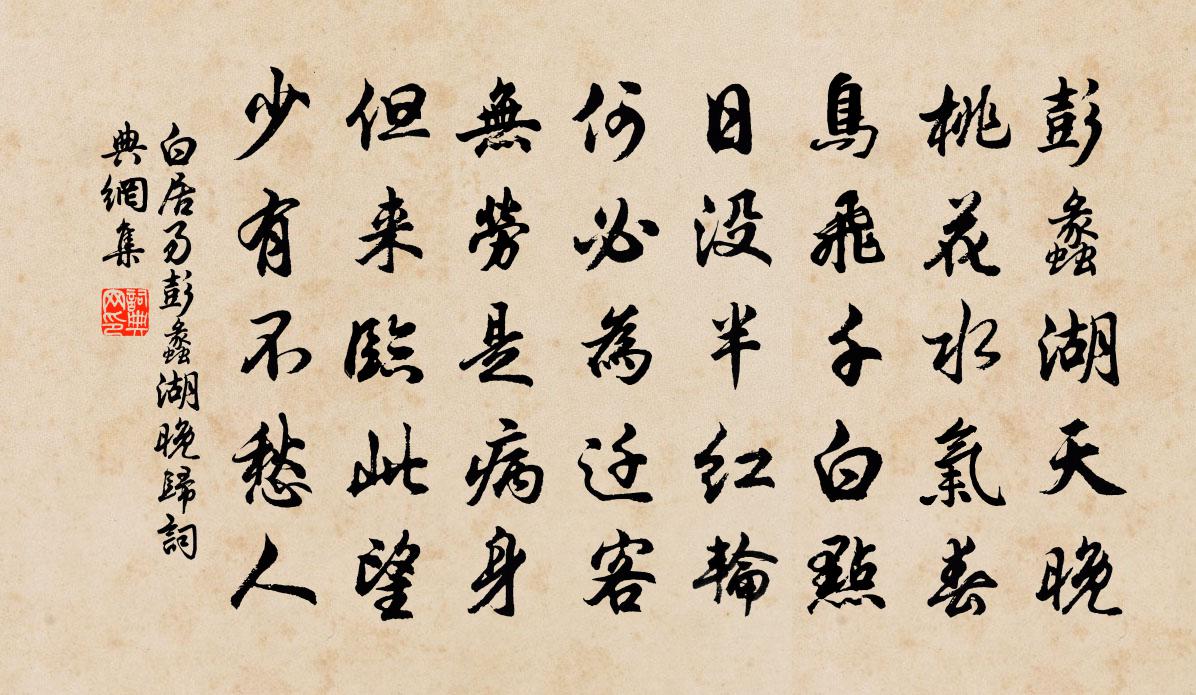 彭蠡湖天晚
桃花水氣春
鳥飛千白點
日没半紅輪
何必為迁客
無勞是病身
但来臨此望
少有不愁人
白居易彭蠡湖晚歸詞
典網集
詞典
网印